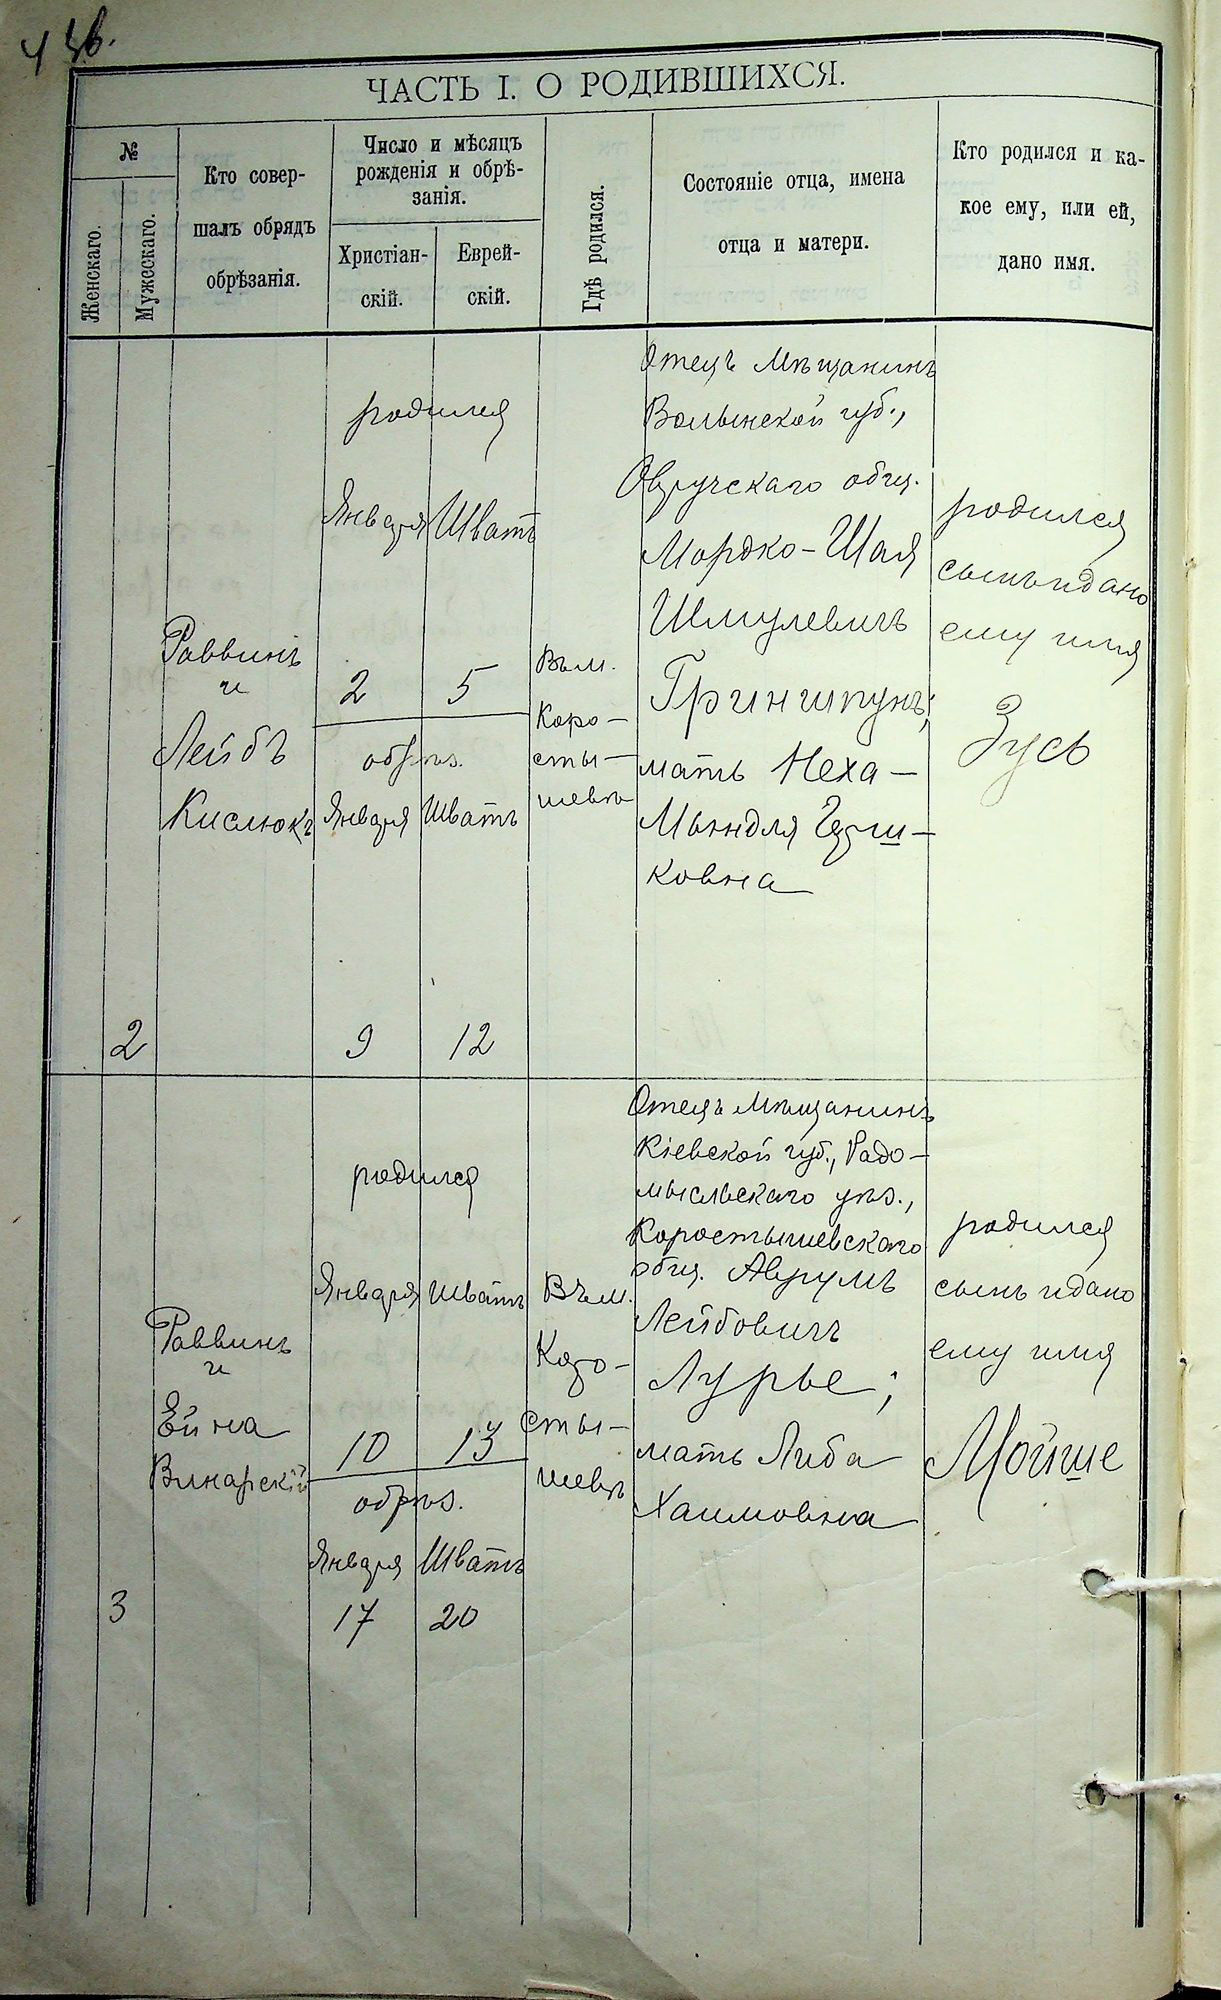 ЧАСТЬ I. О РОДИВШИХСЯ.
№
Женскаго.
Мужескаго.
Кто совер-
шалъ обрядъ
обрѣзанія.
Число и мѣсяцъ
рожденія и обрѣ-
занія.
Христіан-
скій.
Еврей-
скій.
Гдѣ родился.
Состояніе отца, имена
отца и матери.
Кто родился и ка-
кое ему, или ей,
дано имя.
2
Раввинъ
и
Лейбъ
Кислюкъ
родился
Января Шватъ
2 5
обрѣз.
Января Шватъ
9 12
Въ м.
Коро-
сты-
шевѣ
Отецъ Мѣщанинъ
Волынской губ.,
Овручскаго общ.
Мордко-Шая
Шмулевичъ
Гриншпунъ;
мать Неха-
Мындля Герш-
ковна
родился
сынъ и дано
ему имя
Зусь
3
Раввинъ
и
Ейна
Винарскій
родился
Января Шватъ
10 13
обрѣз.
Января Шватъ
17 20
Въ м.
Коро-
сты-
шевѣ
Отецъ Мѣщанинъ
Кіевской губ., Радо-
мысльскаго уѣз.,
Коростышевскаго
общ. Аврумъ
Лейбовичъ
Лурье;
мать Либа
Хаимовна
родился
сынъ и дано
ему имя
Мойше